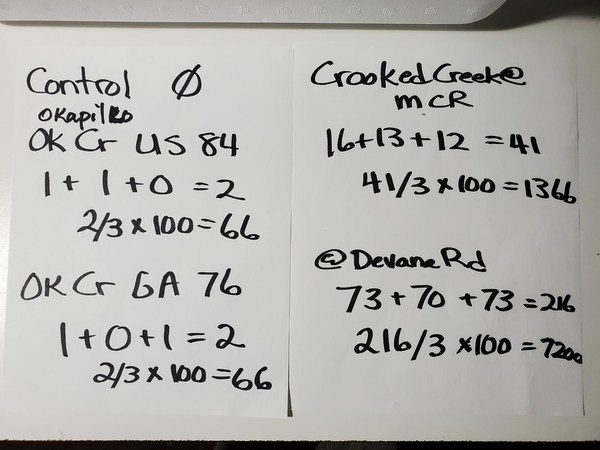 Control Ø
OKapilko
OK Cr US 84
1 + 1 + 0 = 2
2/3 x 100 = 66
OK Cr GA 76
1 + 0 + 1 = 2
2/3 x 100 = 66
Crooked Creek @
m CR
16+13+12 = 41
41/3 x 100 = 1366
@ Devane Rd
73 + 70 + 73 = 216
216/3 x 100 = 7200